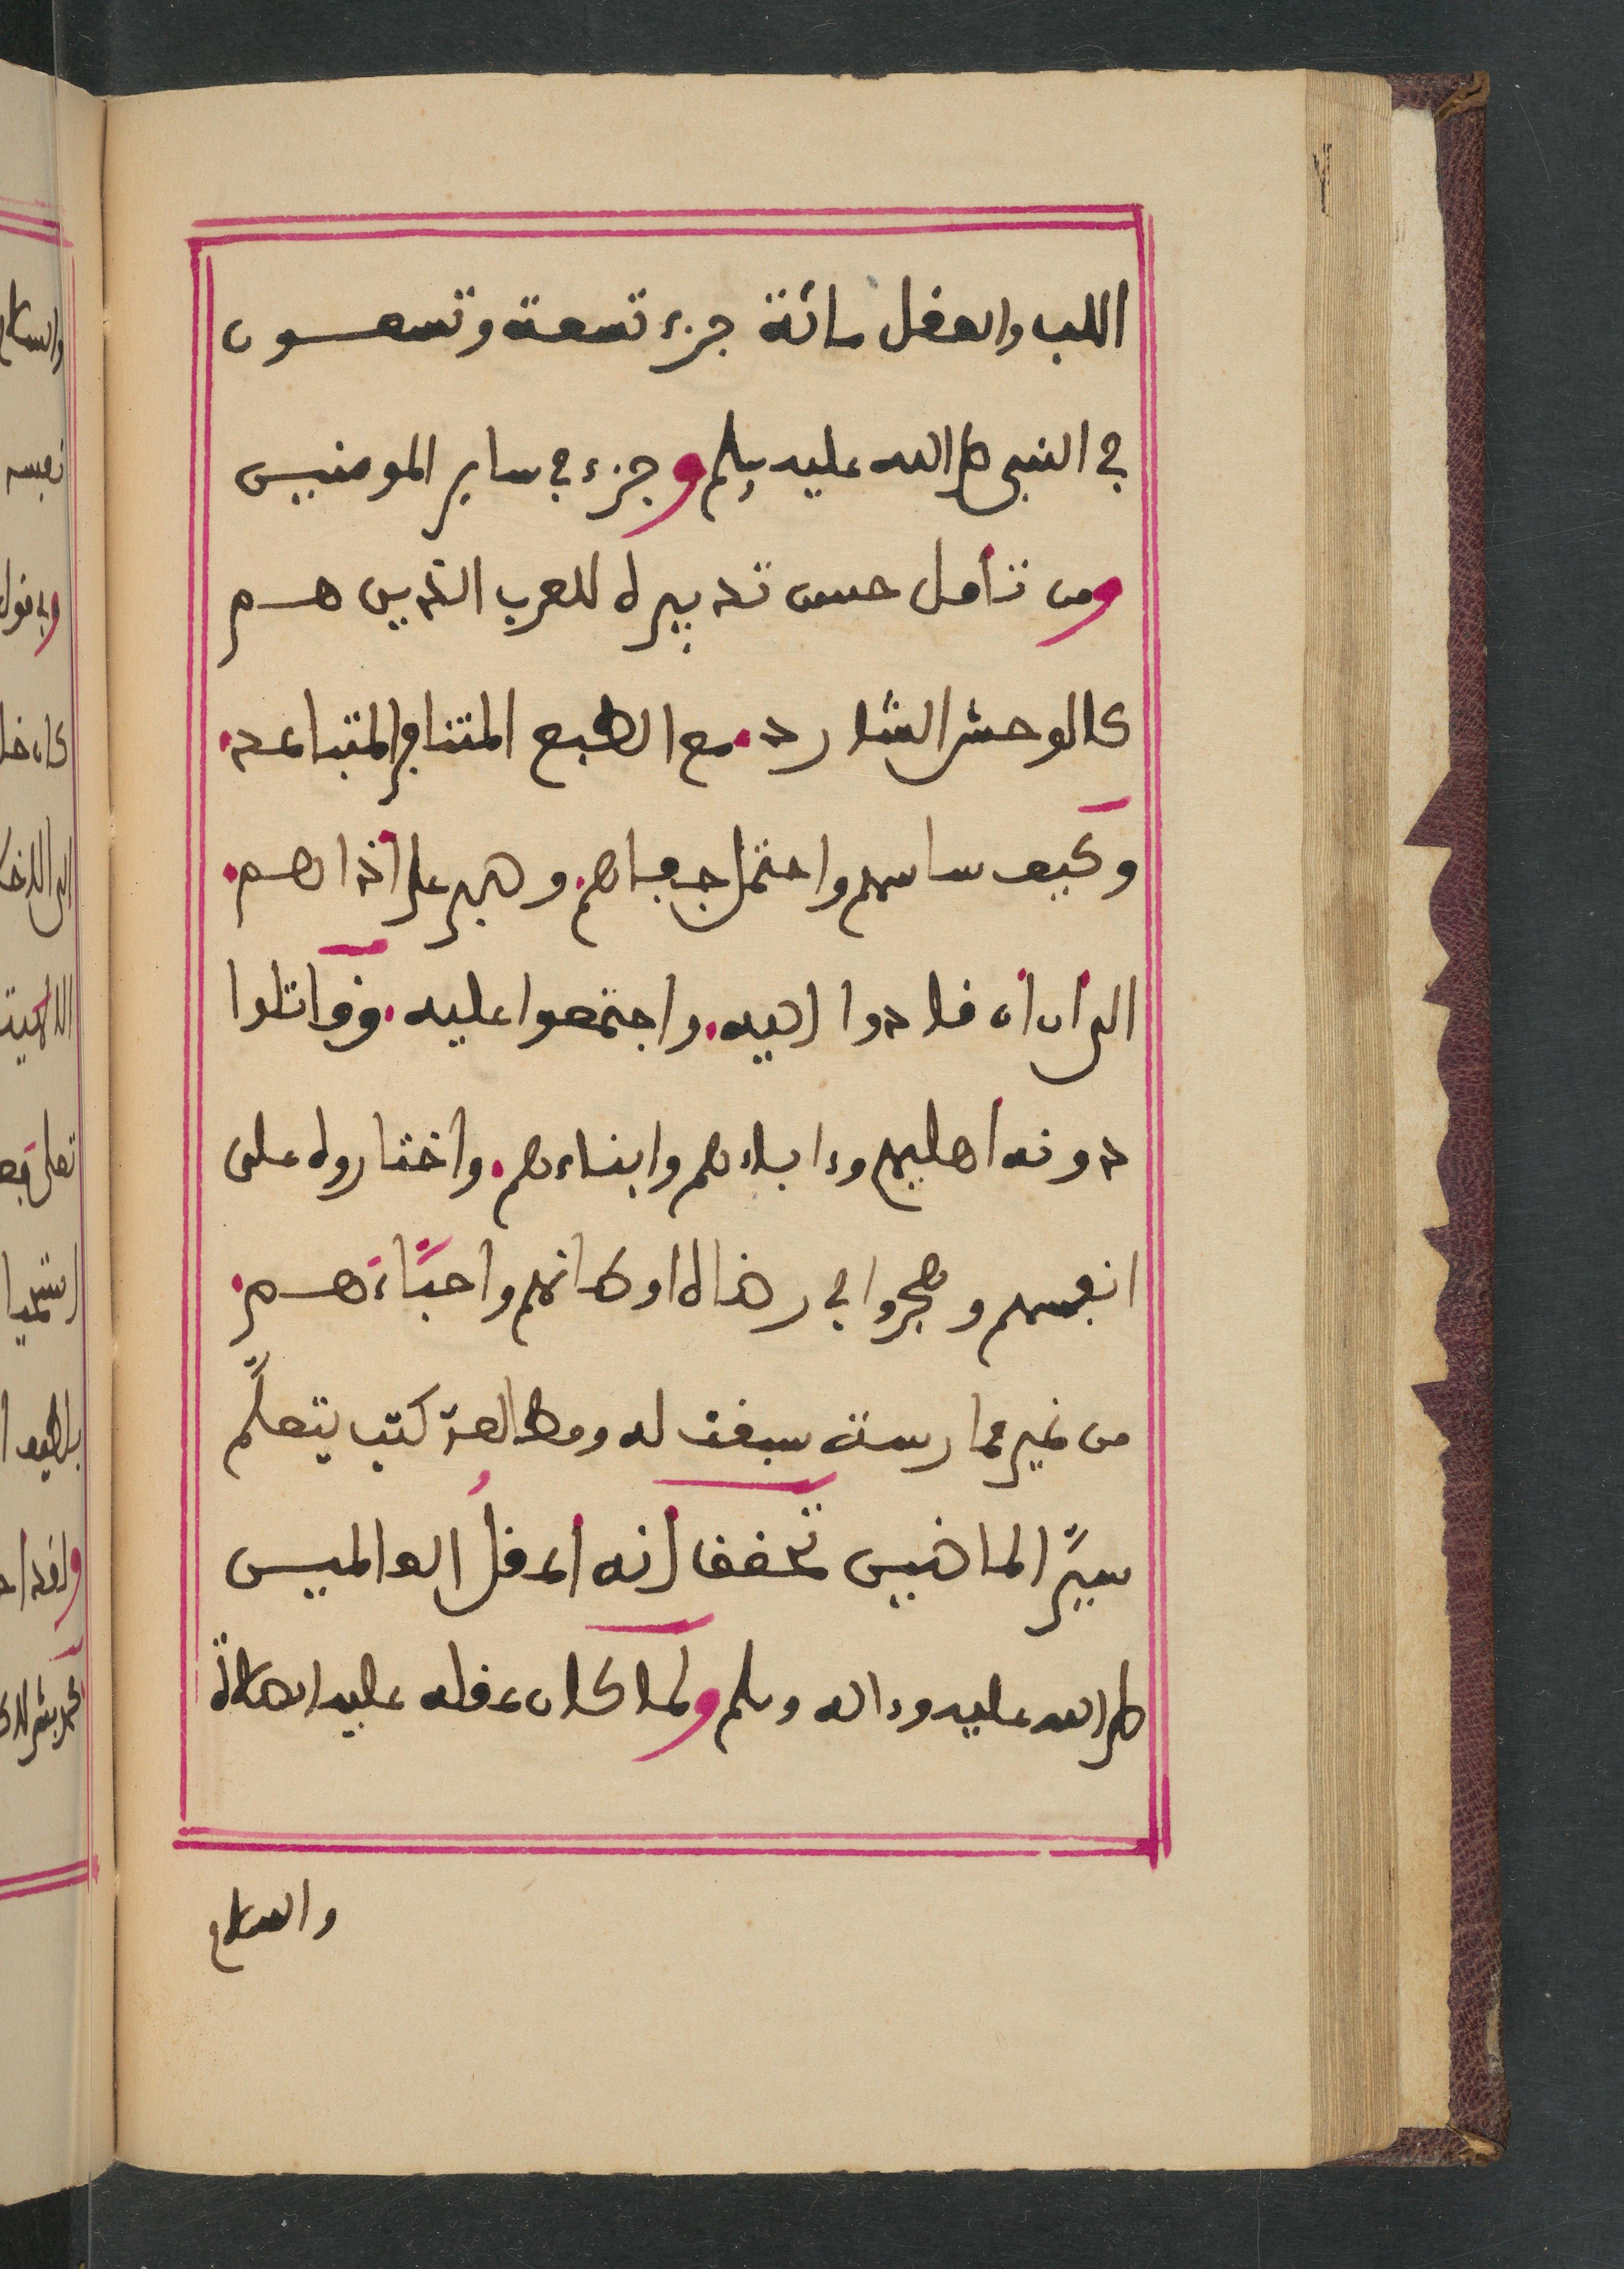 اللب والعقل مائة جزء تسعة وتسعون
في النبي صلى الله عليه وسلم وجزء في ساير المومنين
ومن تأمل حسن تدبيره للعرب الذين هم
كالوحش الشارد. مع الطبع المتنافر المتباعد.
وكيف ساسهم واحتمل جفاهم. وصبر على أذاهم.
الى أن انقادوا إليه. واجتمعوا عليه. وقاتلوا
دونه أهليهم وءاباءهم وابناءهم. واختاروه على
انفسهم وهجروا في رضاه اوطانهم واحبّاءَهم.
من غير ممارسة سبقت له ومطالعة كتب يتعلّم
سيرَ الماضين تحقق إنه أعقلُ العالمين
صلى الله عليه وءاله وسلم ولما كان عقله عليه الصلاة
والسلام